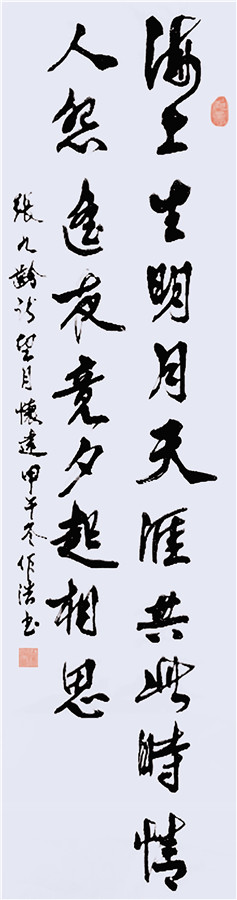 海上生明月天涯共此时情
人怨遥夜竟夕起相思
張九齡詩望月懷遠甲午冬作浩书